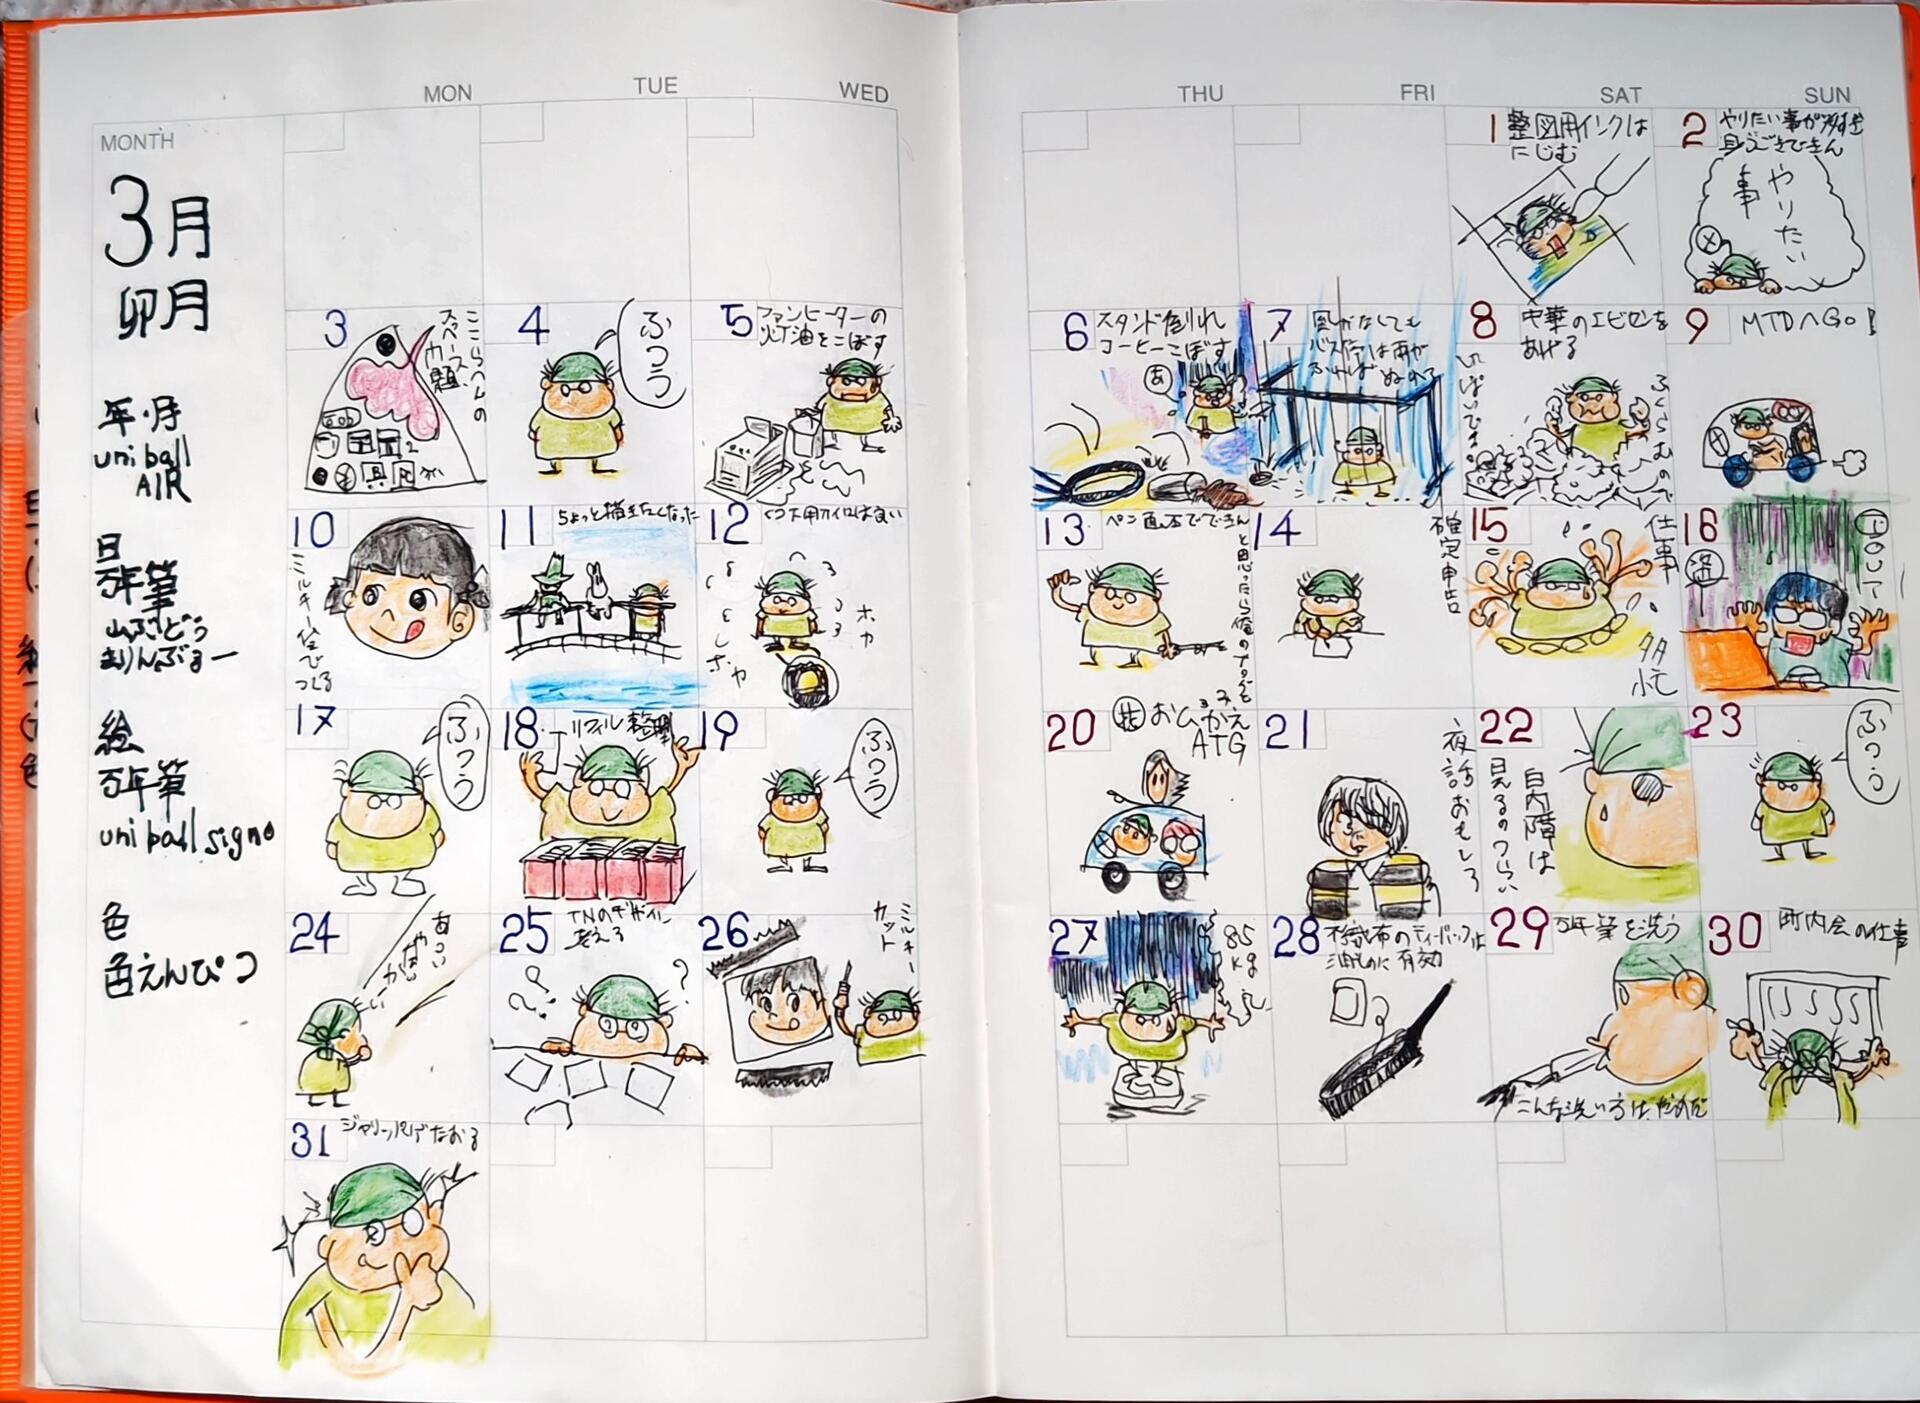 MONTH
MON
TUE
WED
THU
FRI
SAT
SUN
3月
卯月
年・月
uni ball
AIR
日
万年筆
山ぶどう
絵
万年筆
uni ball signo
色
色えんぴつ
1
整図用インクは
にじむ
2
やりたい事が多すぎ
身うごきできん
やりたい
事
3
ここらへんの
スペース
4
ふつう
5
ファンヒーターの
灯油をこぼす
6
スタンド倒れ
コーヒーこぼす
あ
7
屋しがなしても
バス停は雨が
ふればぬれる
8
中華のエビセンを
あげる
ふくらむので
いっぱいできる
9
MTDへGO!
10
ミルキー缶で
つくる
11
ちょっと描きたくなった
12
ホカ
ホカ
13
ペン画
と思ったら俺の
14
確定申告
15
仕事
多忙
16
17
ふつう
18
リフィル整理
19
ふつう
20
おひがん
ATG
21
夜話おもしろ
22
白内障は
見えるのつらい
23
ふつう
24
25
TNのデザイン
考える
??
?
26
ミルキー
カット
27
85
kg
28
不織布のティーバッグは
油ものに有効
29
万年筆を洗う
こんな洗い方はだめだ
30
町内会の仕事
31